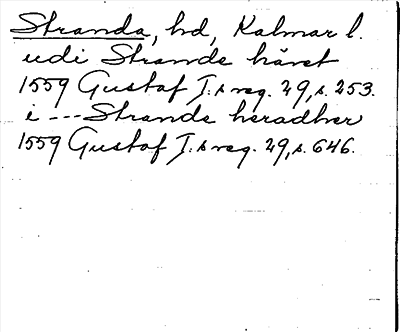 Stranda, hd, Kalmar l.
udi Strande häret
1559 Gustaf I:s reg. 29, s. 253.
i --- Strande heradher
1559 Gustaf I:s reg. 29, s. 646.